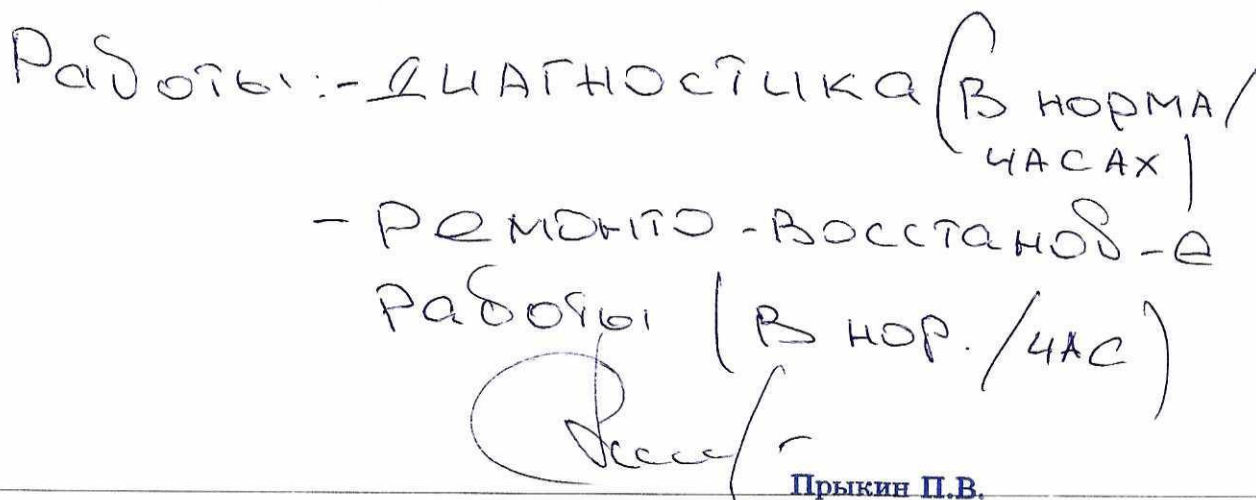 Работы:- Диагностика (в норма/
часах)
- Ремонто-восстанов-е
работы (в нор./час)
Прыкин П.В.